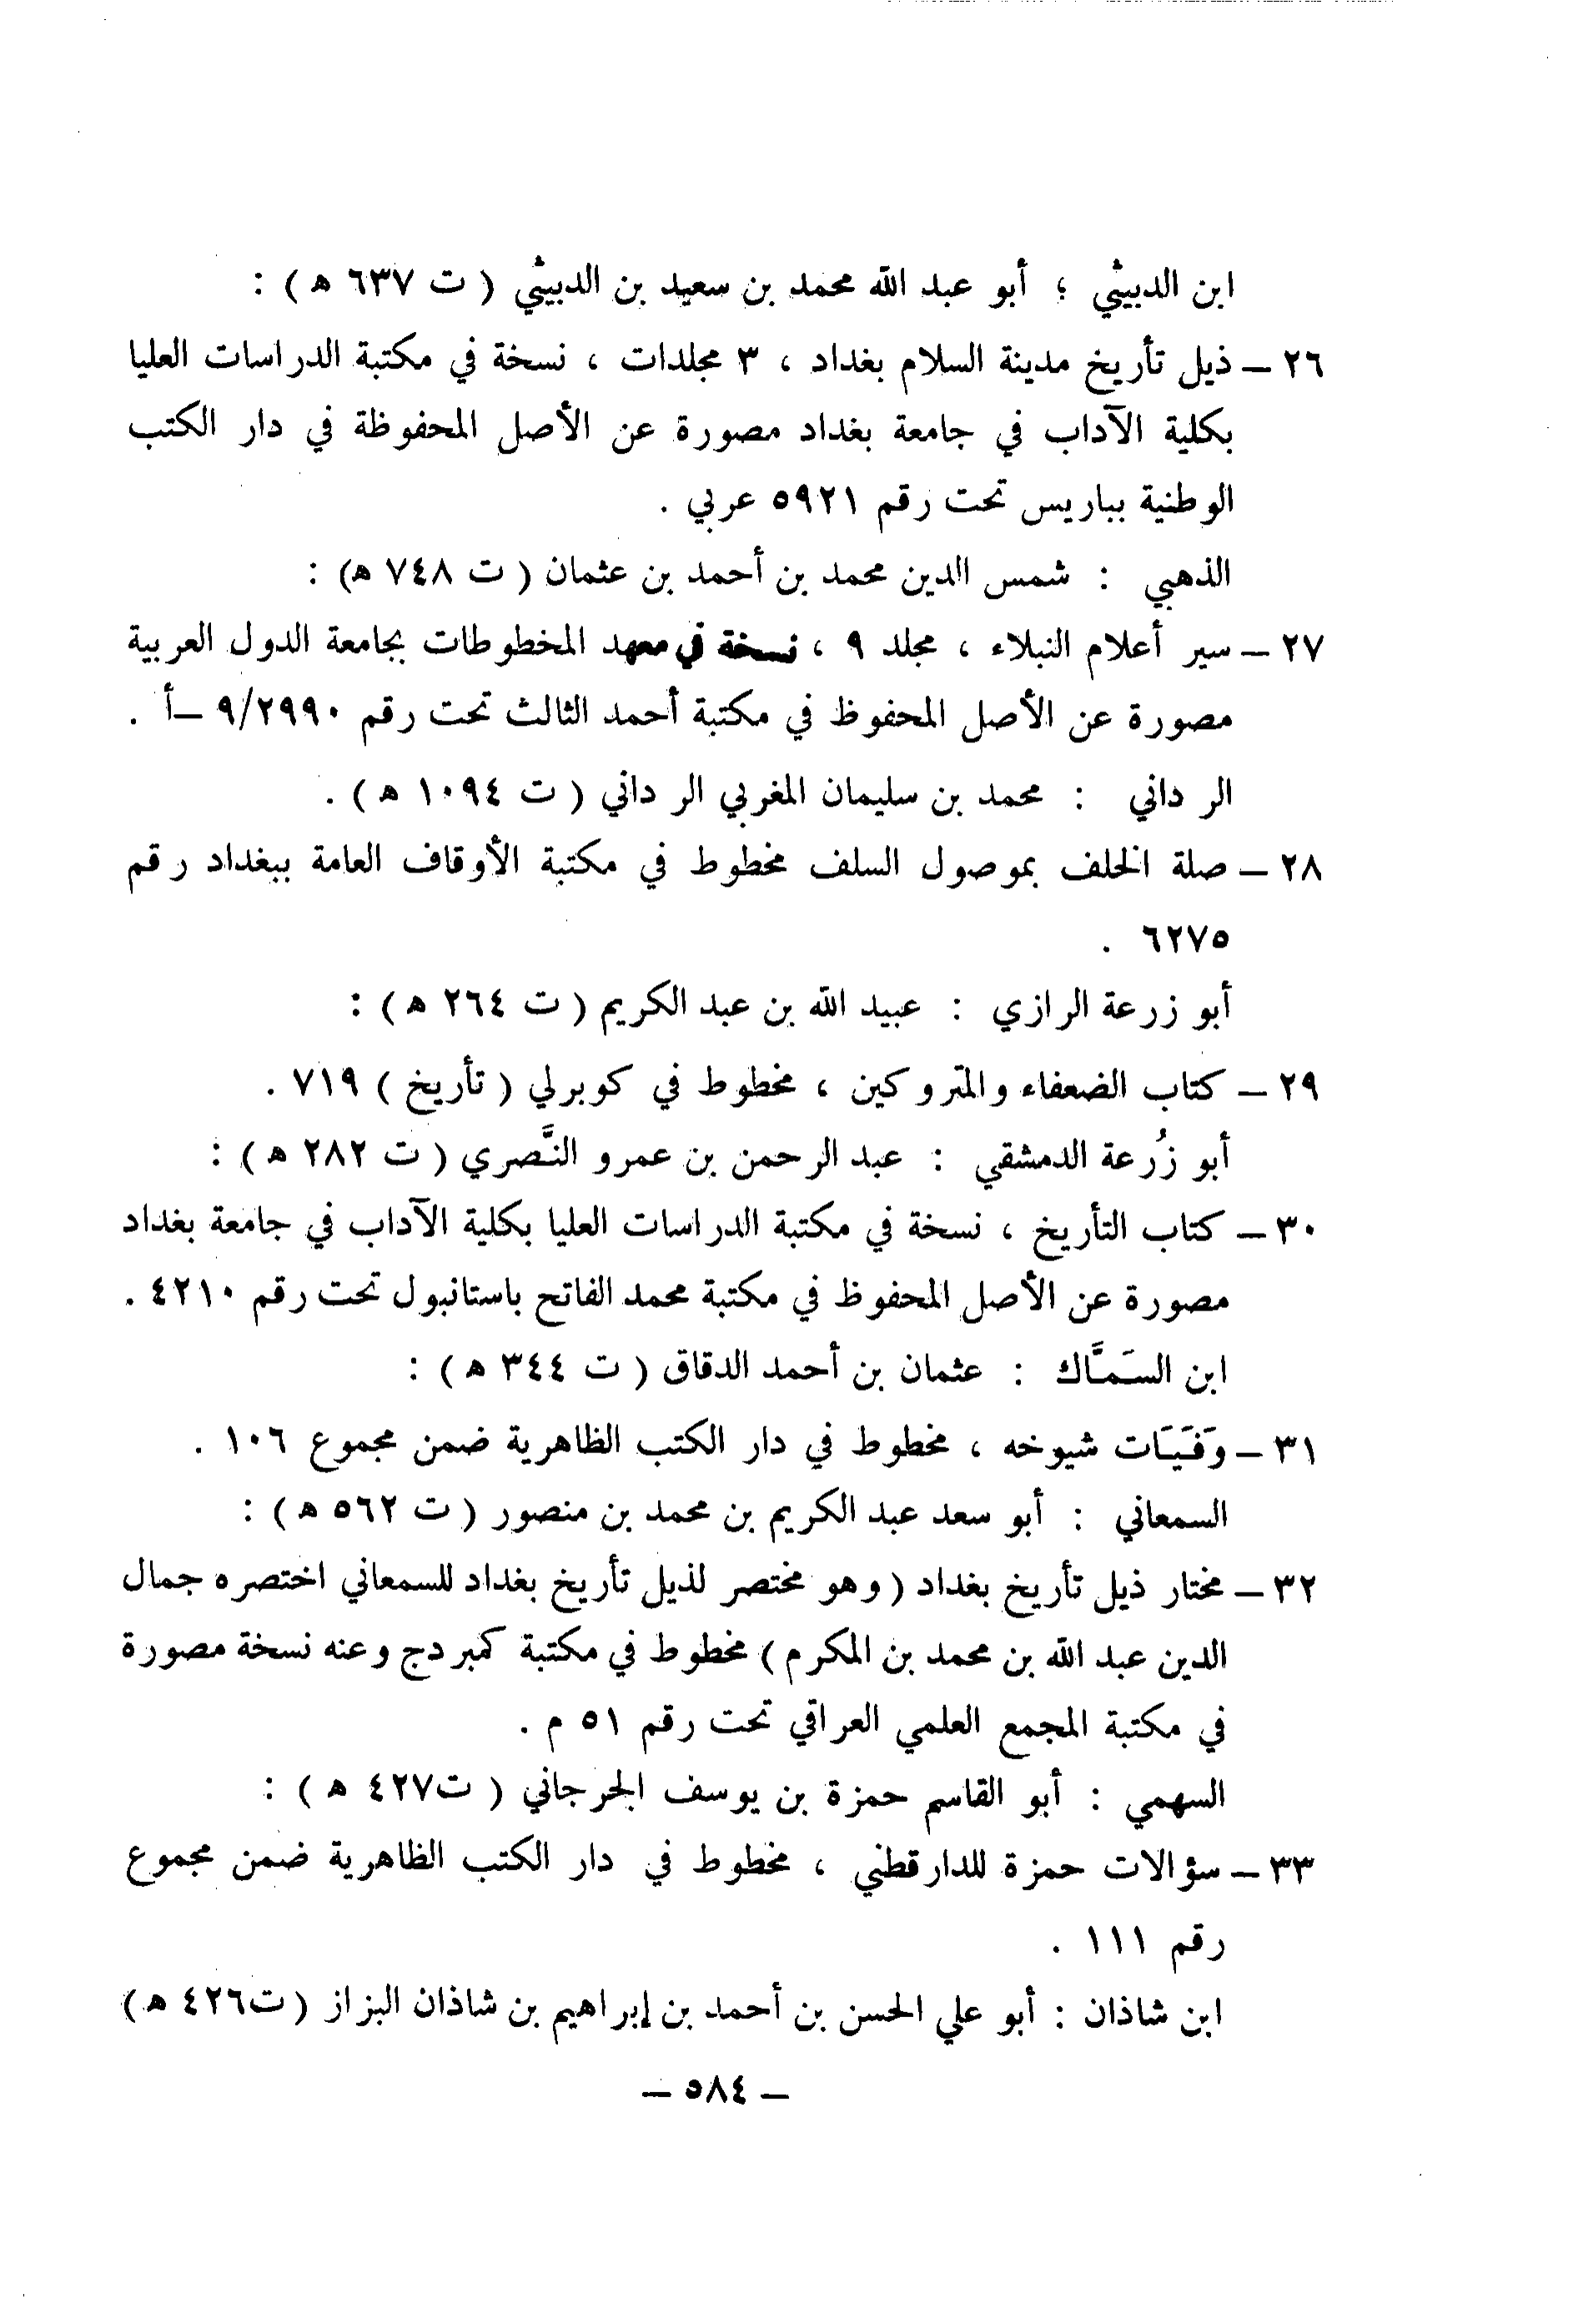 ابن الدبيثي ؛ أبو عبد الله محمد بن سعيد بن الدبيثي ( ت ٦٣٧ ه ) :
٢٦ – ذيل تأريخ مدينة السلام بغداد ، ٣ مجلدات ، نسخة في مكتبة الدراسات العليا
بكلية الآداب في جامعة بغداد مصورة عن الأصل المحفوظة في دار الكتب
الوطنية بباريس تحت رقم ٥٩٢١ عربي .
الذهبي : شمس الدين محمد بن أحمد بن عثمان ( ت ٧٤٨ ه) :
٢٧ – سير أعلام النبلاء ، مجلد ٩ ، نسخة في معهد المخطوطات بجامعة الدول العربية
مصورة عن الأصل المحفوظ في مكتبة أحمد الثالث تحت رقم ٩/٢٩٩٠ –أ .
الرداني : محمد بن سليمان المغربي الرداني ( ت ١٠٩٤ ه ) .
٢٨ – صلة الخلف بموصول السلف مخطوط في مكتبة الأوقاف العامة ببغداد رقم
٦٢٧٥ .
أبو زرعة الرازي : عبيد الله بن عبد الكريم ( ت ٢٦٤ ه ) :
٢٩ – كتاب الضعفاء والمتروكين ، مخطوط في كوبرلي ( تأريخ ) ٧١٩ .
أبو زُرعة الدمشقي : عبد الرحمن بن عمرو النَّصري ( ت ٢٨٢ ه ) :
٣٠ – كتاب التأريخ ، نسخة في مكتبة الدراسات العليا بكلية الآداب في جامعة بغداد
مصورة عن الأصل المحفوظ في مكتبة محمد الفاتح باستانبول تحت رقم ٤٢١٠ .
ابن السَمَّاك : عثمان بن أحمد الدقاق ( ت ٣٤٤ ه ) :
٣١ – وَفَيَات شيوخه ، مخطوط في دار الكتب الظاهرية ضمن مجموع ١٠٦ .
السمعاني : أبو سعد عبد الكريم بن محمد بن منصور ( ت ٥٦٢ ه ) :
٣٢ – مختار ذيل تأريخ بغداد ( وهو مختصر لذيل تأريخ بغداد للسمعاني اختصره جمال
الدين عبد الله بن محمد بن المكرم ) مخطوط في مكتبة كمبردج وعنه نسخة مصورة
في مكتبة المجمع العلمي العراقي تحت رقم ٥١ م .
السهمي : أبو القاسم حمزة بن يوسف الجرجاني ( ت٤٢٧ ه ) :
٣٣ – سؤالات حمزة للدارقطني ، مخطوط في دار الكتب الظاهرية ضمن مجموع
رقم ١١١ .
ابن شاذان : أبو علي الحسن بن أحمد بن إبراهيم بن شاذان البزاز ( ت٤٢٦ ه )
– ٥٨٤ –